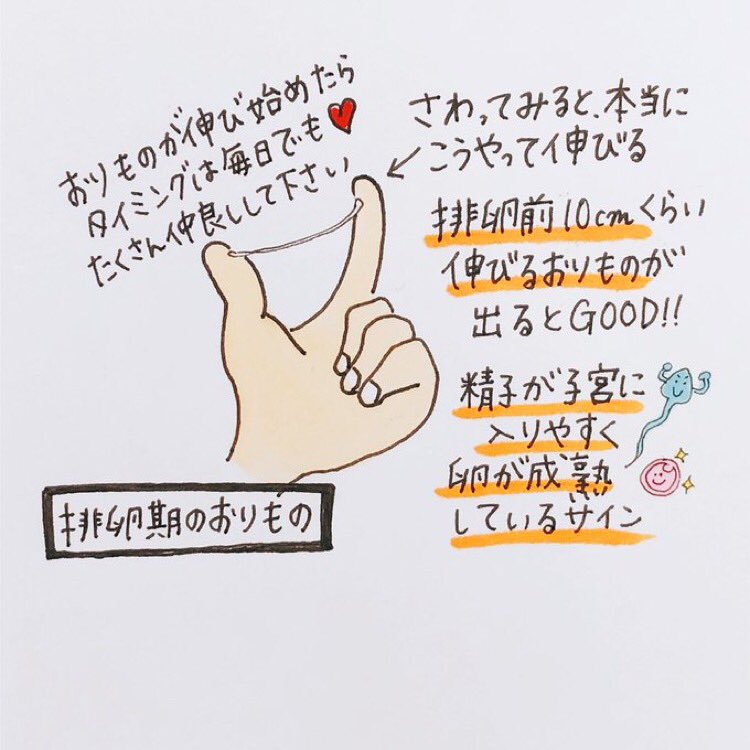 おりものが伸び始めたら
タイミングは毎日でも♥
たくさん仲良しして下さい
さわってみると、本当に
こうやって伸びる
排卵前10cmくらい
伸びるおりものが
出るとGOOD!!
精子が子宮に
入りやすく
卵が成熟
しているサイン
排卵期のおりもの